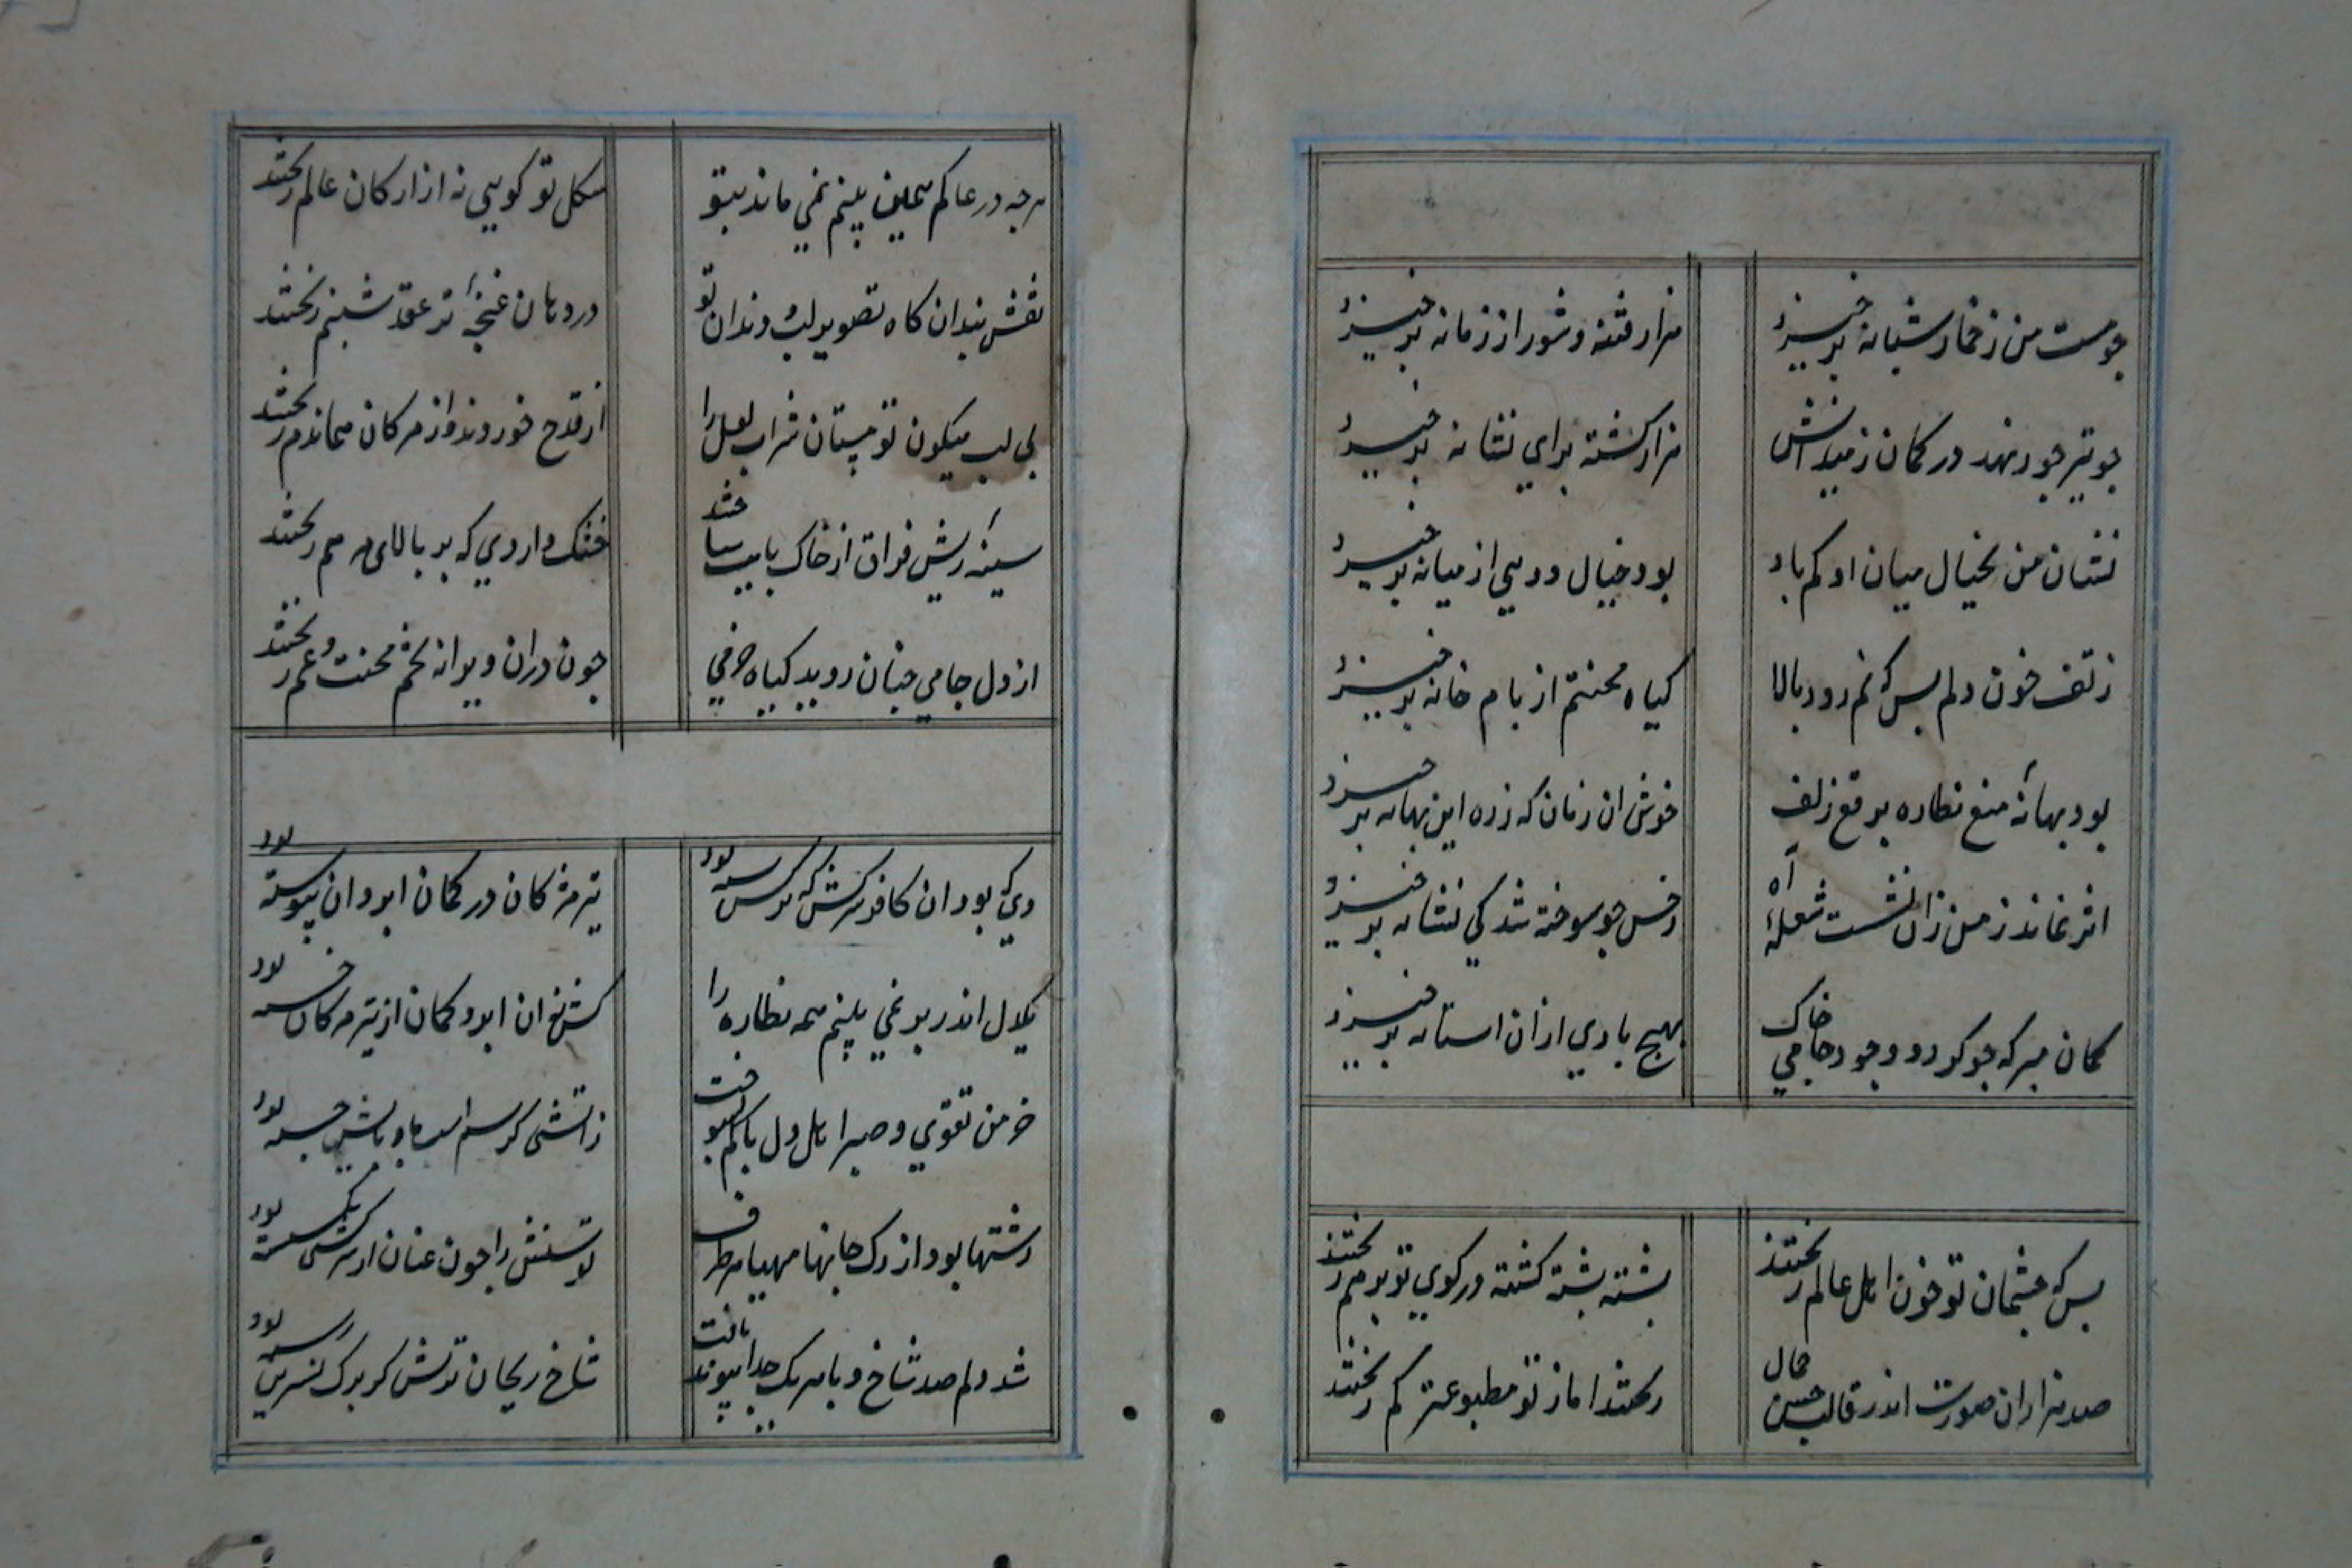 جو مست من زخمار شبانه برخیزد هزار فتنه و شور از زمانه برخیزد
جو تیر جور نهد در کمان زمیدانش هزار کشته برای نشانه برخیزد
نشان من بخیال میان او کم باد بود خیال دویی از میانه برخیزد
زتف خون دلم بس که نم رود بالا کیاه محنتم از بام خانه برخیزد
بود بهانهٔ منع نظاره برقع زلف خوش ان زمان که زره این بهانه برخیزد
اثر نماند زمن زان نشست شعلهٔ آه زخس جو سوخته شد کی نشانه برخیزد
کمان مبر که جو کردد وجود جامی خاک بهیچ بادی ازان استانه برخیزد
بس که چشمان تو خون اهل عالم ریختند پشته پشته کشته در کوی تو بر هم ریختند
صد هزاران صورت اندر قالب حسن جمال ریختند اما ز تو مطبوعتر کم ریختند
هرجه در عالم همین بینم نمی ماند بتو شکل تو کویی نه از ارکان عالم ریختند
نقش بندان کاه تصویر لب و دندان تو در دهان غنچهٔ تر عقد شبنم ریختند
بی لب میکون تو مستان شراب لعل را از قدح خوردند و از مژکان هماندم ریختند
سینهٔ ریش فراق از خاک پایت ساختند خشک داروی که بر بالای مرهم ریختند
از دل جامی جنان روید کیاه خرمی جون دران ویرانه تخم محنت و غم ریختند
دی که بود ان کافر سرکش که ترکش بسته بود تیر مژکان در کمان ابروان پیوسته بود
یک دل اندر بر نمی بینم همه نظاره را کش نه ان ابرو کمان از تیر مژکان خسته بود
خرمن تقوی و صبر اهل دل پاکم بسوخت زاتشی کز سم اسب باد پایش جسته بود
رشتها بود از رک جانها مهیا هر طرف توسنش را جون عنان از سرکشی بکسسته بود
شد دلم صد شاخ و با هر یک جدا پیوند یافت شاخ ریحان ترش کز برک نسرین رسته بود